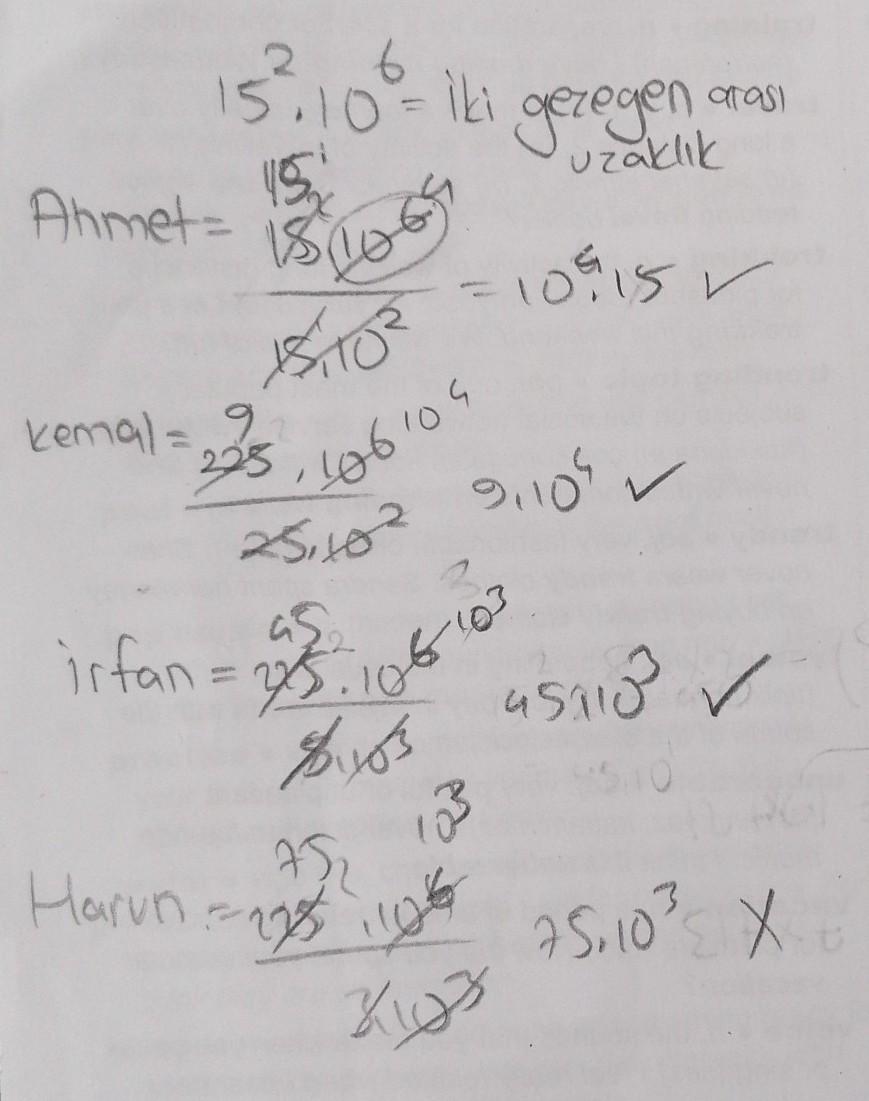 15².10⁶ = iki gezegen arası
uzaklık
Ahmet = 15 15.10⁶ 4 / 15.10² = 10⁴.15 ✓
kemal = 9 225.10⁶ 10⁴ / 25.10² 9.10⁴ ✓
irfan = 45 225.10⁶ 10³ / 5.10³ 45.10³ ✓
Harun = 75 225.10⁶ 10³ / 3.10³ 75.10³ X